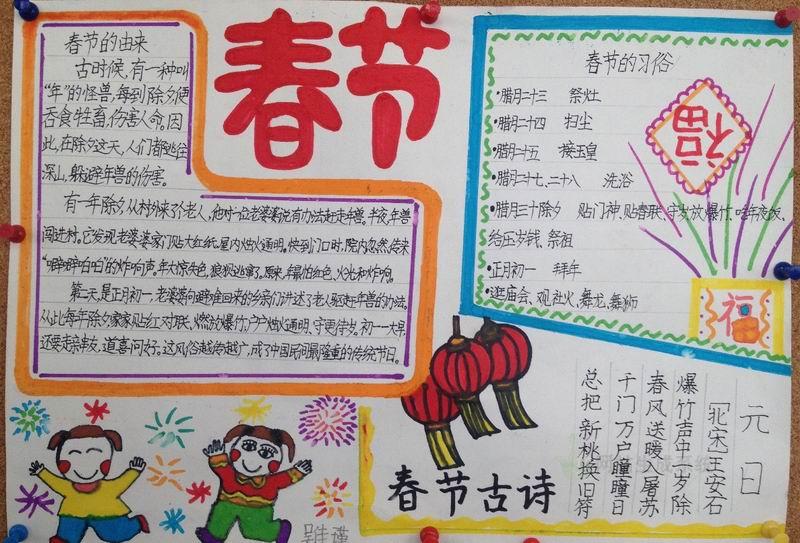 春节
春节的由来
古时候,有一种叫
“年”的怪兽,每到除夕便
吞食牲畜,伤害人命。因
此,在除夕这天,人们都逃往
深山,躲避年兽的伤害。
有一年除夕,从村外来了个老人,他对一位老婆婆说有办法赶走年兽。半夜,年兽
闯进村。它发现老婆婆家门贴大红纸,屋内烛火通明。快到门口时,院内忽然传来
的炸响声。年大惊失色,狼狈逃窜了。原来,年最怕红色、火光和炸响。
第二天是正月初一,老婆婆向避难回来的乡亲们讲述了老人驱赶年兽的办法。
从此每年除夕家家贴红对联、燃放爆竹,户户烛火通明、守更待岁。初一一大早,
还要走亲串友、道喜问好。这风俗越传越广,成了中国民间最隆重的传统节日。
春节的习俗
•腊月二十三 祭灶
•腊月二十四 扫尘
•腊月二十五 接玉皇
•腊月二十七、二十八 洗浴
•腊月三十除夕 贴门神、贴春联、守岁、放爆竹、吃年夜饭、
给压岁钱、祭祖
•正月初一 拜年
•逛庙会、观社火、舞龙、舞狮
福
福
春节古诗
元日
[北宋]王安石
爆竹声中一岁除
春风送暖入屠苏
千门万户瞳瞳日
总把新桃换旧符